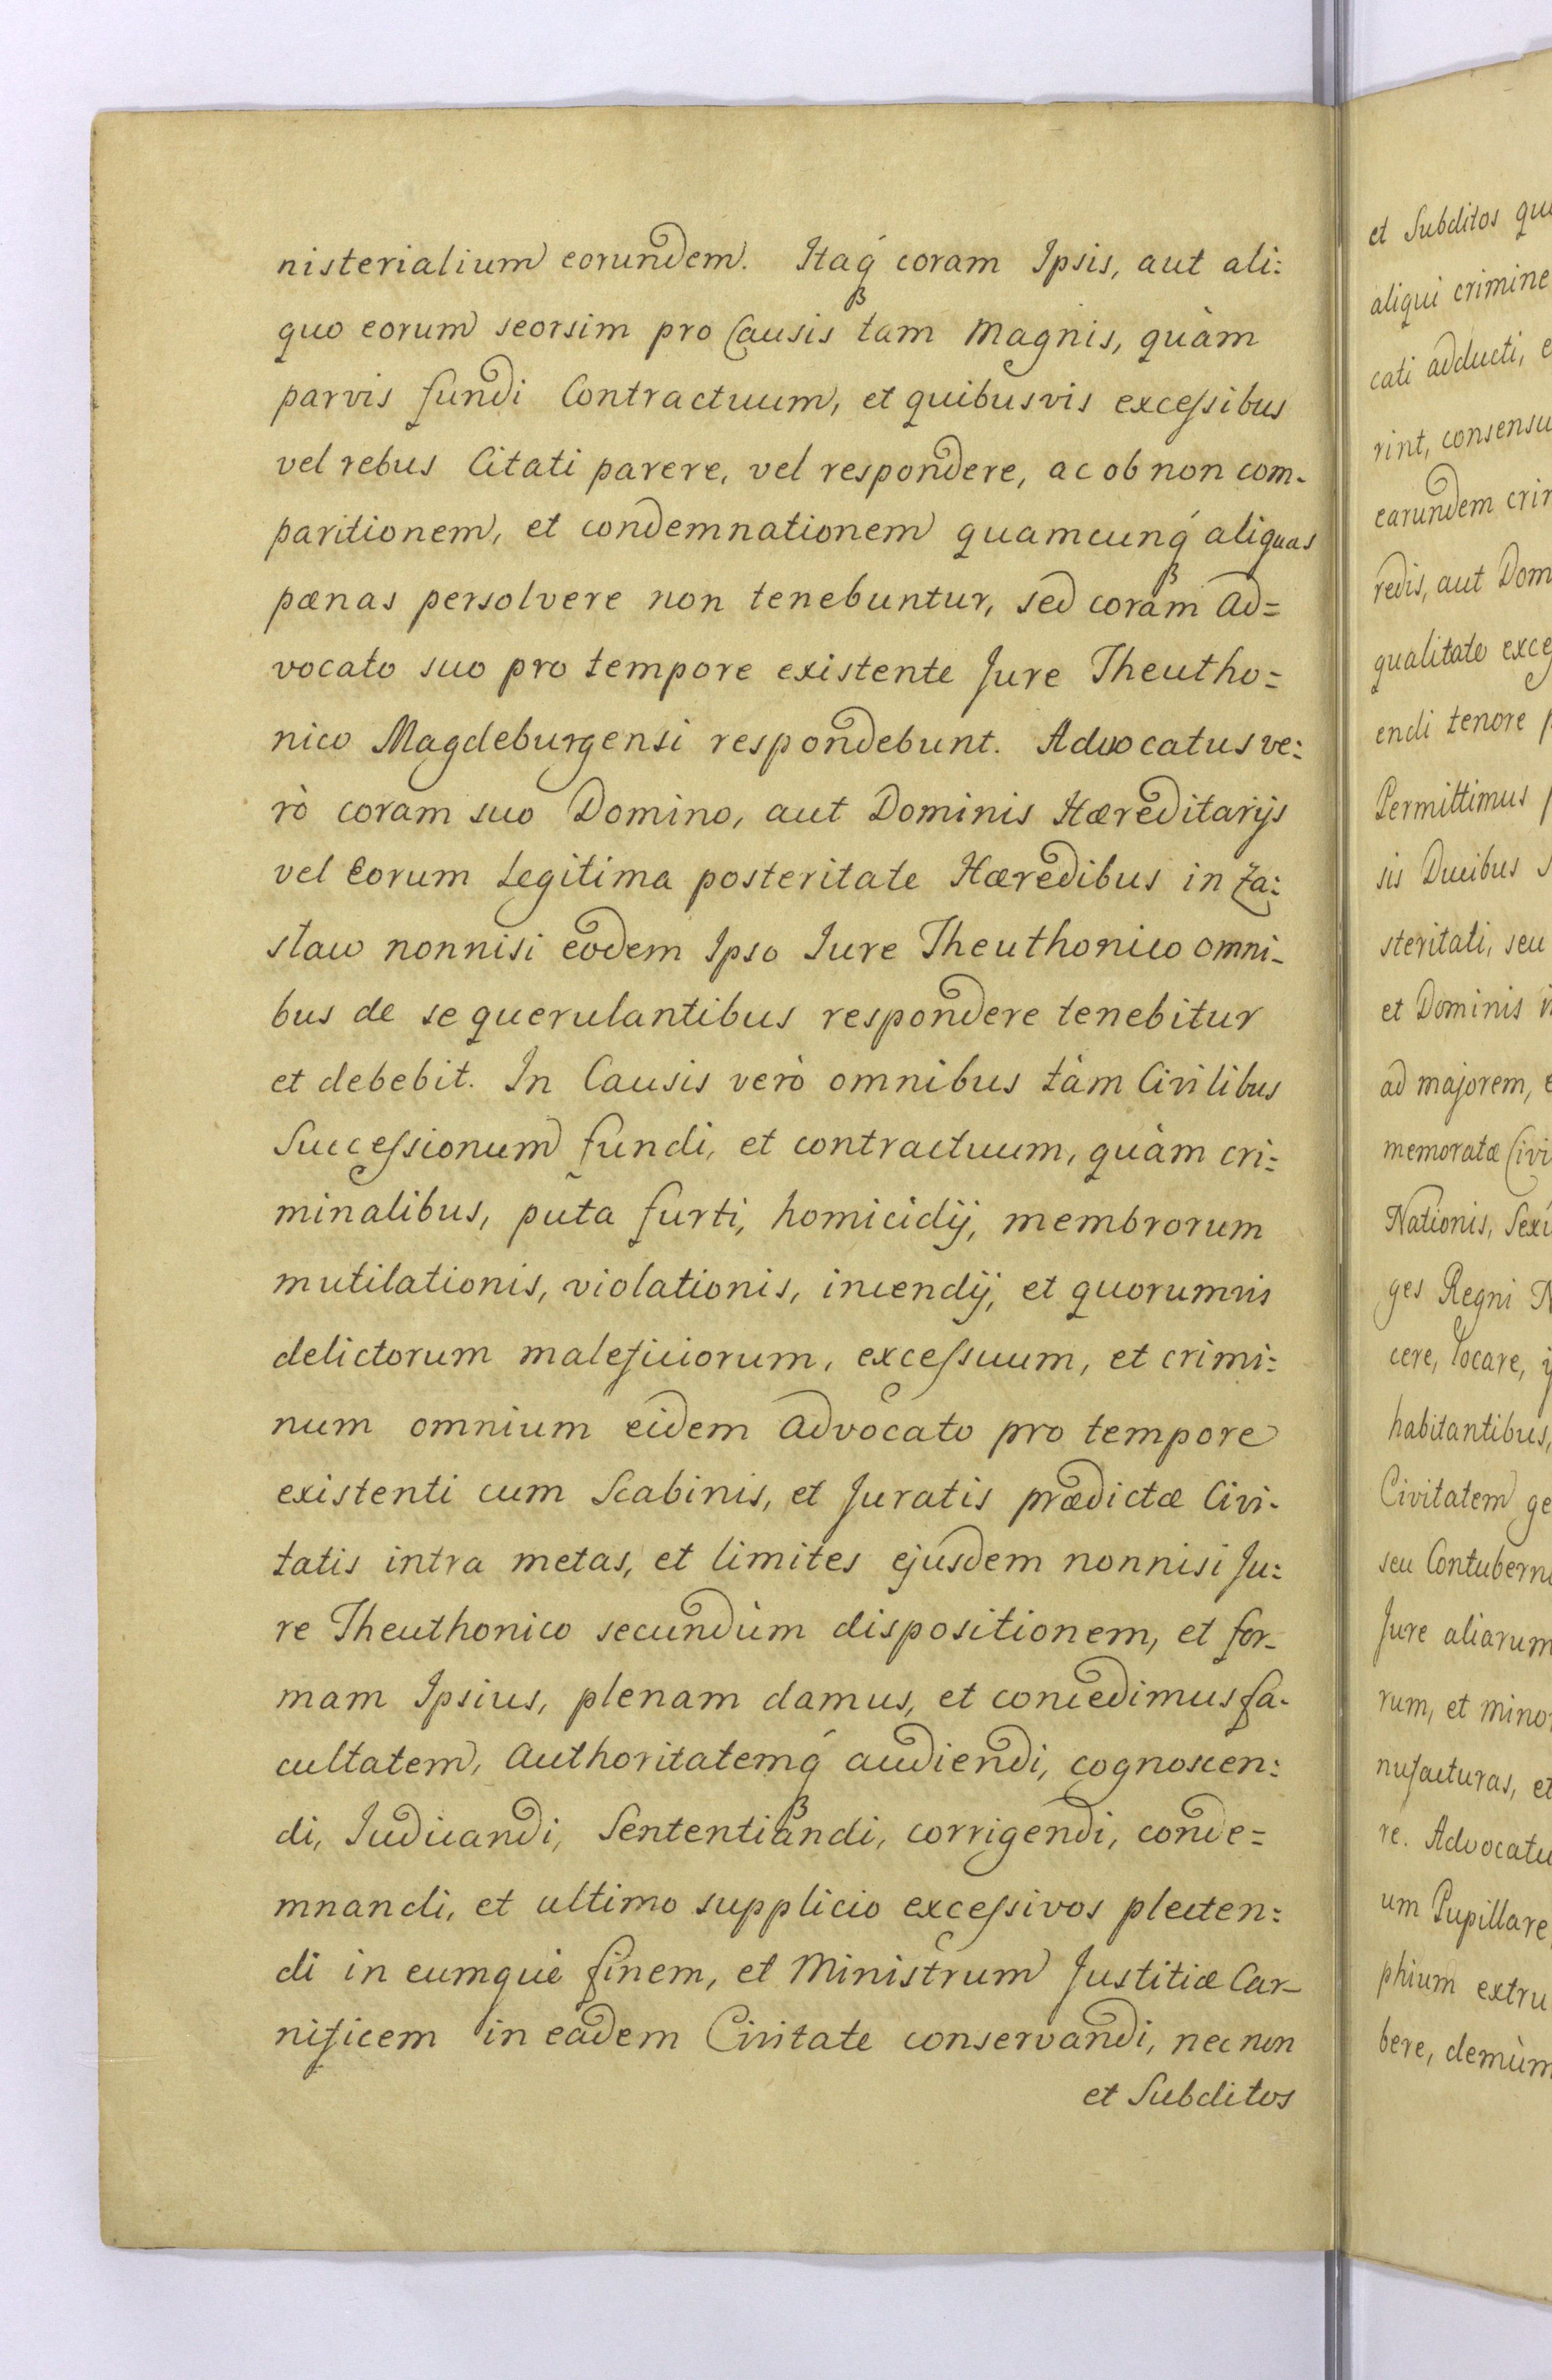 nisterialium eorundem. Itaq́ꝫ coram Ipsis, aut ali:
quo eorum seorsim pro Causis tam Magnis, quàm
parvis fundi Contractuum, et quibusvis exceſsibus
vel rebus Citati parere, vel respondere, ac ob non com-
paritionem, et condemnationem quamcunq́ꝫ aliquas
pœnas persolvere non tenebuntur, sed coram Ad=
vocato suo pro tempore existente Jure Theutho=
nico Magdeburgensi respondebunt. Advocatus ve:
rò coram suo Domino, aut Dominis Hæreditarijs
vel Eorum Legitima posteritate Hæredibus in Za:
slaw nonnisi eodem Ipso Iure Theuthonico omni-
bus de se querulantibus respondere tenebitur
et debebit. In Causis verò omnibus tàm Civilibus
Succeſsionum fundi, et contractuum, quàm cri:
minalibus, puta furti, homicidij, membrorum
mutilationis, violationis, incendij, et quorumvis
delictorum maleficiorum, exceſsuum, et crimi:
num omnium eidem Advocato pro tempore
existenti cum Scabinis, et Juratis prædictæ Civi-
tatis intra metas, et limites ejusdem nonnisi Ju:
re Theuthonico secundùm dispositionem, et for-
mam Ipsius, plenam damus, et concedimus fa-
cultatem, Authoritatemq́ꝫ audiendi, cognoscen:
di, Iudicandi, Sententiandi, corrigendi, conde=
mnandi, et ultimo supplicio exceſsivos plecten:
di in eumque finem, et Ministrum Justitiæ Car-
nificem in eadem Civitate conservandi, nec non
et Subditos
et Subditos
aliqui crimine
cati adducti,
rint, consensu
earundem
redis, aut
qualitate
endi tenore
Permittimus
sis Ducibus
steritati, seu
et Dominis
ad majorem,
memoratæ
Nationis,
ges Regni
cere, locare,
habitantibus,
Civitatem
seu
Jure aliarum
rum, et
nufacturas, et
re.
um Pupillare,
phium
bere, demùm